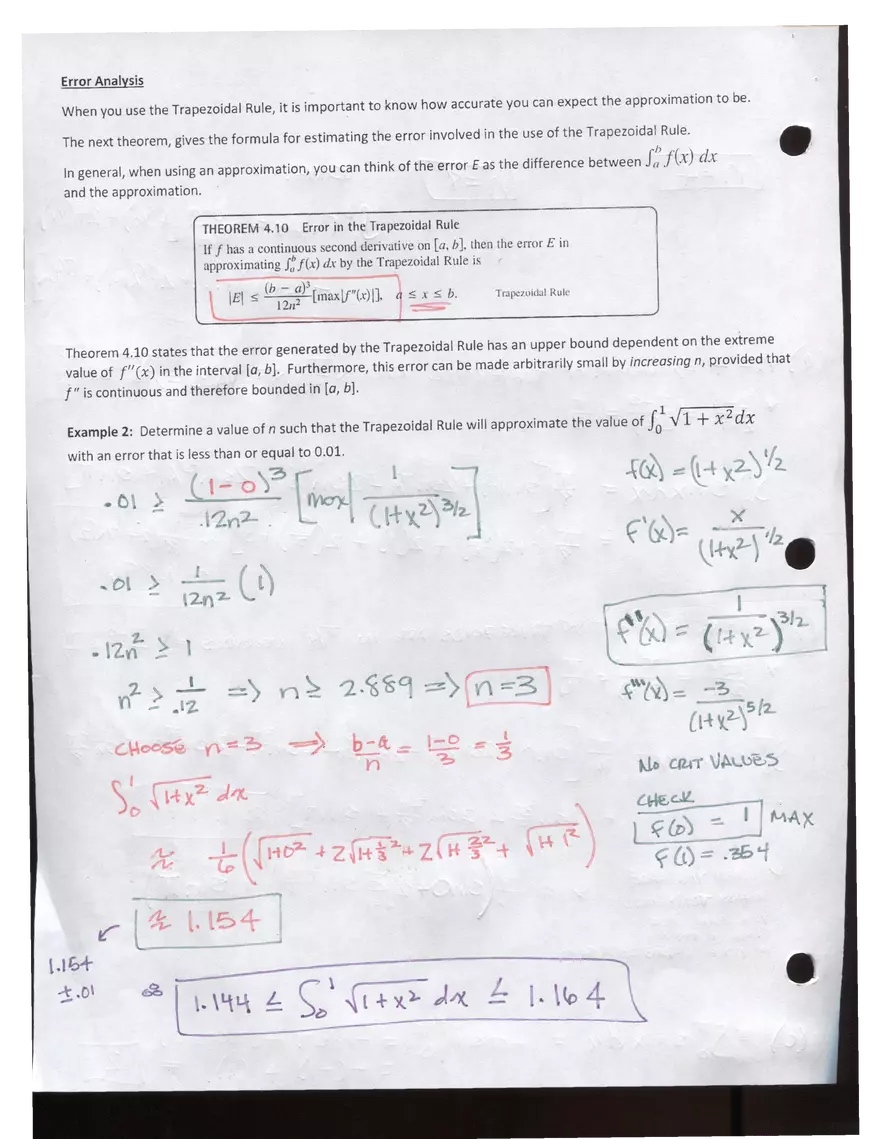 Error Analysis
When you use the Trapezoidal Rule, it is important to know how accurate you can expect the approximation to be.
The next theorem, gives the formula for estimating the error involved in the use of the Trapezoidal Rule.
In general, when using an approximation, you can think of the error E as the difference between ∫_a^b f(x) dx
and the approximation.
THEOREM 4.10 Error in the Trapezoidal Rule
If f has a continuous second derivative on [a, b], then the error E in
approximating ∫_a^b f(x) dx by the Trapezoidal Rule is
|E| ≤ (b − a)³/12n² [max|f″(x)|], a ≤ x ≤ b. Trapezoidal Rule
Theorem 4.10 states that the error generated by the Trapezoidal Rule has an upper bound dependent on the extreme
value of f″(x) in the interval [a, b]. Furthermore, this error can be made arbitrarily small by increasing n, provided that
f″ is continuous and therefore bounded in [a, b].
Example 2: Determine a value of n such that the Trapezoidal Rule will approximate the value of ∫_0^1 √(1 + x²)dx
with an error that is less than or equal to 0.01.
.01 ≥ (1-0)³/12n² [max| 1/(1+x²)^3/2]
.01 ≥ 1/12n² (1)
.12n² ≥ 1
n² ≥ 1/.12 => n ≥ 2.889 => n=3
CHOOSE n=3 => b-a/n = 1-0/3 = 1/3
∫_0^1 √(1+x²) dx
≈ 1/6 (√(1+0²) + 2√(1+1/3²) + 2√(1+2/3²) + √(1+1²))
≈ 1.154
1.154
±.01
∴ 1.144 ≤ ∫_0^1 √(1+x²) dx ≤ 1.164
f(x) = (1+x²)^1/2
f'(x) = x/(1+x²)^1/2
f"(x) = 1/(1+x²)^3/2
f'''(x) = -3/(1+x²)^5/2
NO CRIT VALUES
CHECK
f(0) = 1 MAX
f(1) = .354